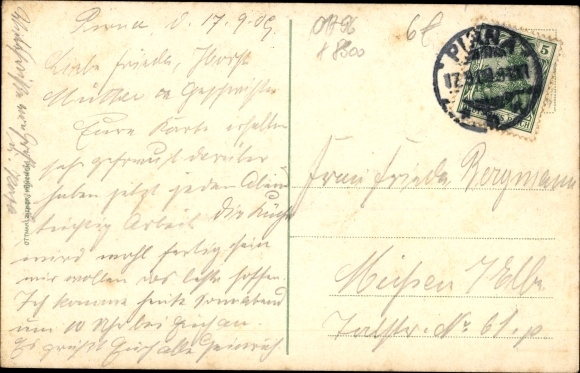 Pirna, d. 17.9.09.
Liebe Frieda, Horst
Mutter u. Geschwister
Eure Karte erhalten
sehr gefreut darüber
haben jetzt jeden Abend
tüchtig Arbeit. Die Küche
wird wohl fertig sein
wir wollen das beste hoffen.
Ich komme heute Sonnabend
um 10 Uhr bei Euch an.
Es grüßt Euch alle Heinrich
6f
PIRNA
17.9.09
5
Frau Frieda Bergmann
Meißen / Elbe
Talstr. No 61. p